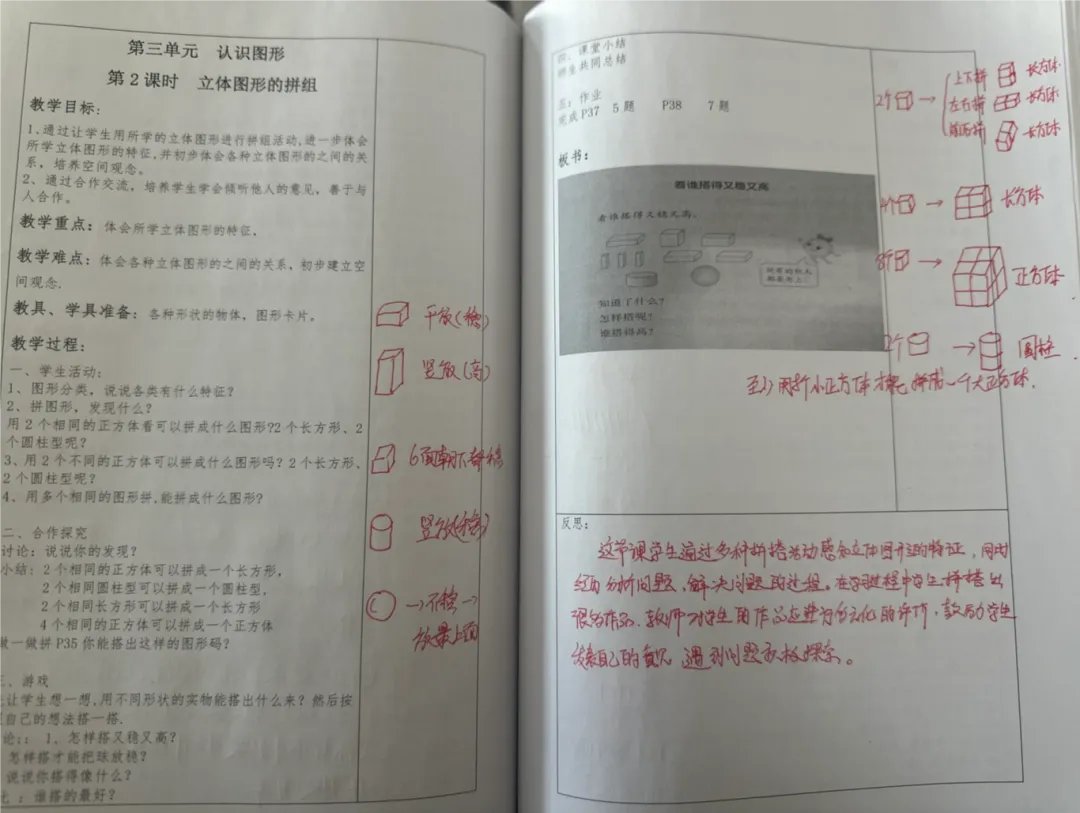 第三单元 认识图形
第2课时 立体图形的拼组
教学目标:
1、通过让学生用所学的立体图形进行拼组活动,进一步体会
所学立体图形的特征,并初步体会各种立体图形的之间的关
系，培养空间观念。
2、通过合作交流，培养学生学会倾听他人的意见，善于与
人合作。
教学重点：体会所学立体图形的特征。
教学难点：体会各种立体图形的之间的关系，初步建立空
间观念.
教具、学具准备：各种形状的物体，图形卡片。
教学过程：
一、学生活动：
1、图形分类，说说各类有什么特征？
2、拼图形，发现什么？
用2个相同的正方体看可以拼成什么图形?2个长方形、2
个圆柱型呢？
3、用2个不同的正方体可以拼成什么图形吗？2个长方形、
2个圆柱型呢？
4、用多个相同的图形拼,能拼成什么图形?
二、合作探究
讨论：说说你的发现？
小结：2个相同的正方体可以拼成一个长方形，
2个相同圆柱型可以拼成一个圆柱型，
2个相同长方形可以拼成一个长方形
4个相同的正方体可以拼成一个正方体
做一做拼P35你能搭出这样的图形吗？
三、游戏
让学生想一想,用不同形状的实物能搭出什么来？然后按
自己的想法搭一搭.
论：：1、怎样搭又稳又高？
怎样搭才能把球放稳？
说说你搭得像什么？
：谁搭的最好？
平放(稳)
竖放(高)
6面朝下都稳
竖放(稳)
→不稳→
放最上面
四、课堂小结
师生共同总结
五：作业
完成P37 5题 P38 7题
板书：
看谁搭得又稳又高
看谁搭得又稳又高。
所有的积木
都要用上!
知道了什么？
怎样搭呢？
谁搭得高？
2个 → 上下拼 长方体
左右拼 长方体
前后拼 长方体
4个 → 长方体
8个 → 正方体
2个 → 圆柱
至少用8个小正方体才能拼成一个大正方体.
反思：
这节课学生通过多种拼搭活动感知立体图形的特征，同时
经历分析问题、解决问题的过程。在学习过程中学生拼搭出
很多作品，教师对学生的作品应进行多元化的评价，鼓励学生
发表自己的意见，遇到问题积极探索。